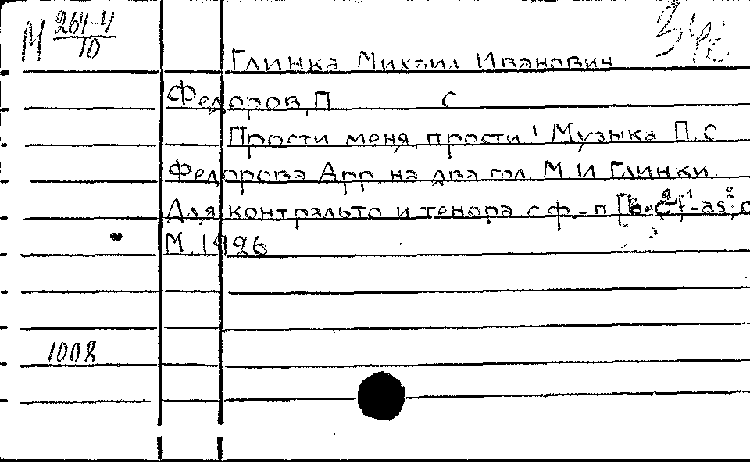 М 264-4
10
Глинка Михаил Иванович
Федоров, П С
Прости меня, прости! Музыка П. С
Федорова Арр. на два гол. М И Глинки.
Для контральто и тенора с ф.-п
М. 1926
1008